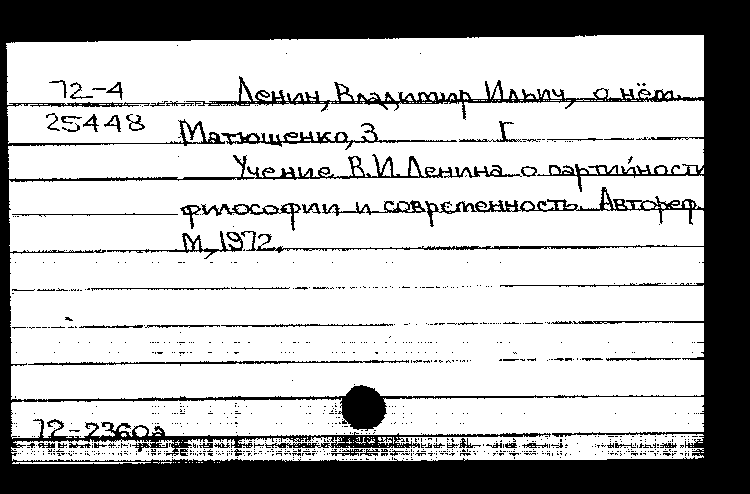 72-4 Ленин, Владимир Ильич, о нём.
25448 Матющенко, З Г
Учение В.И. Ленина о партийности
философии и современность. Автореф.
М., 1972.
72-2360а